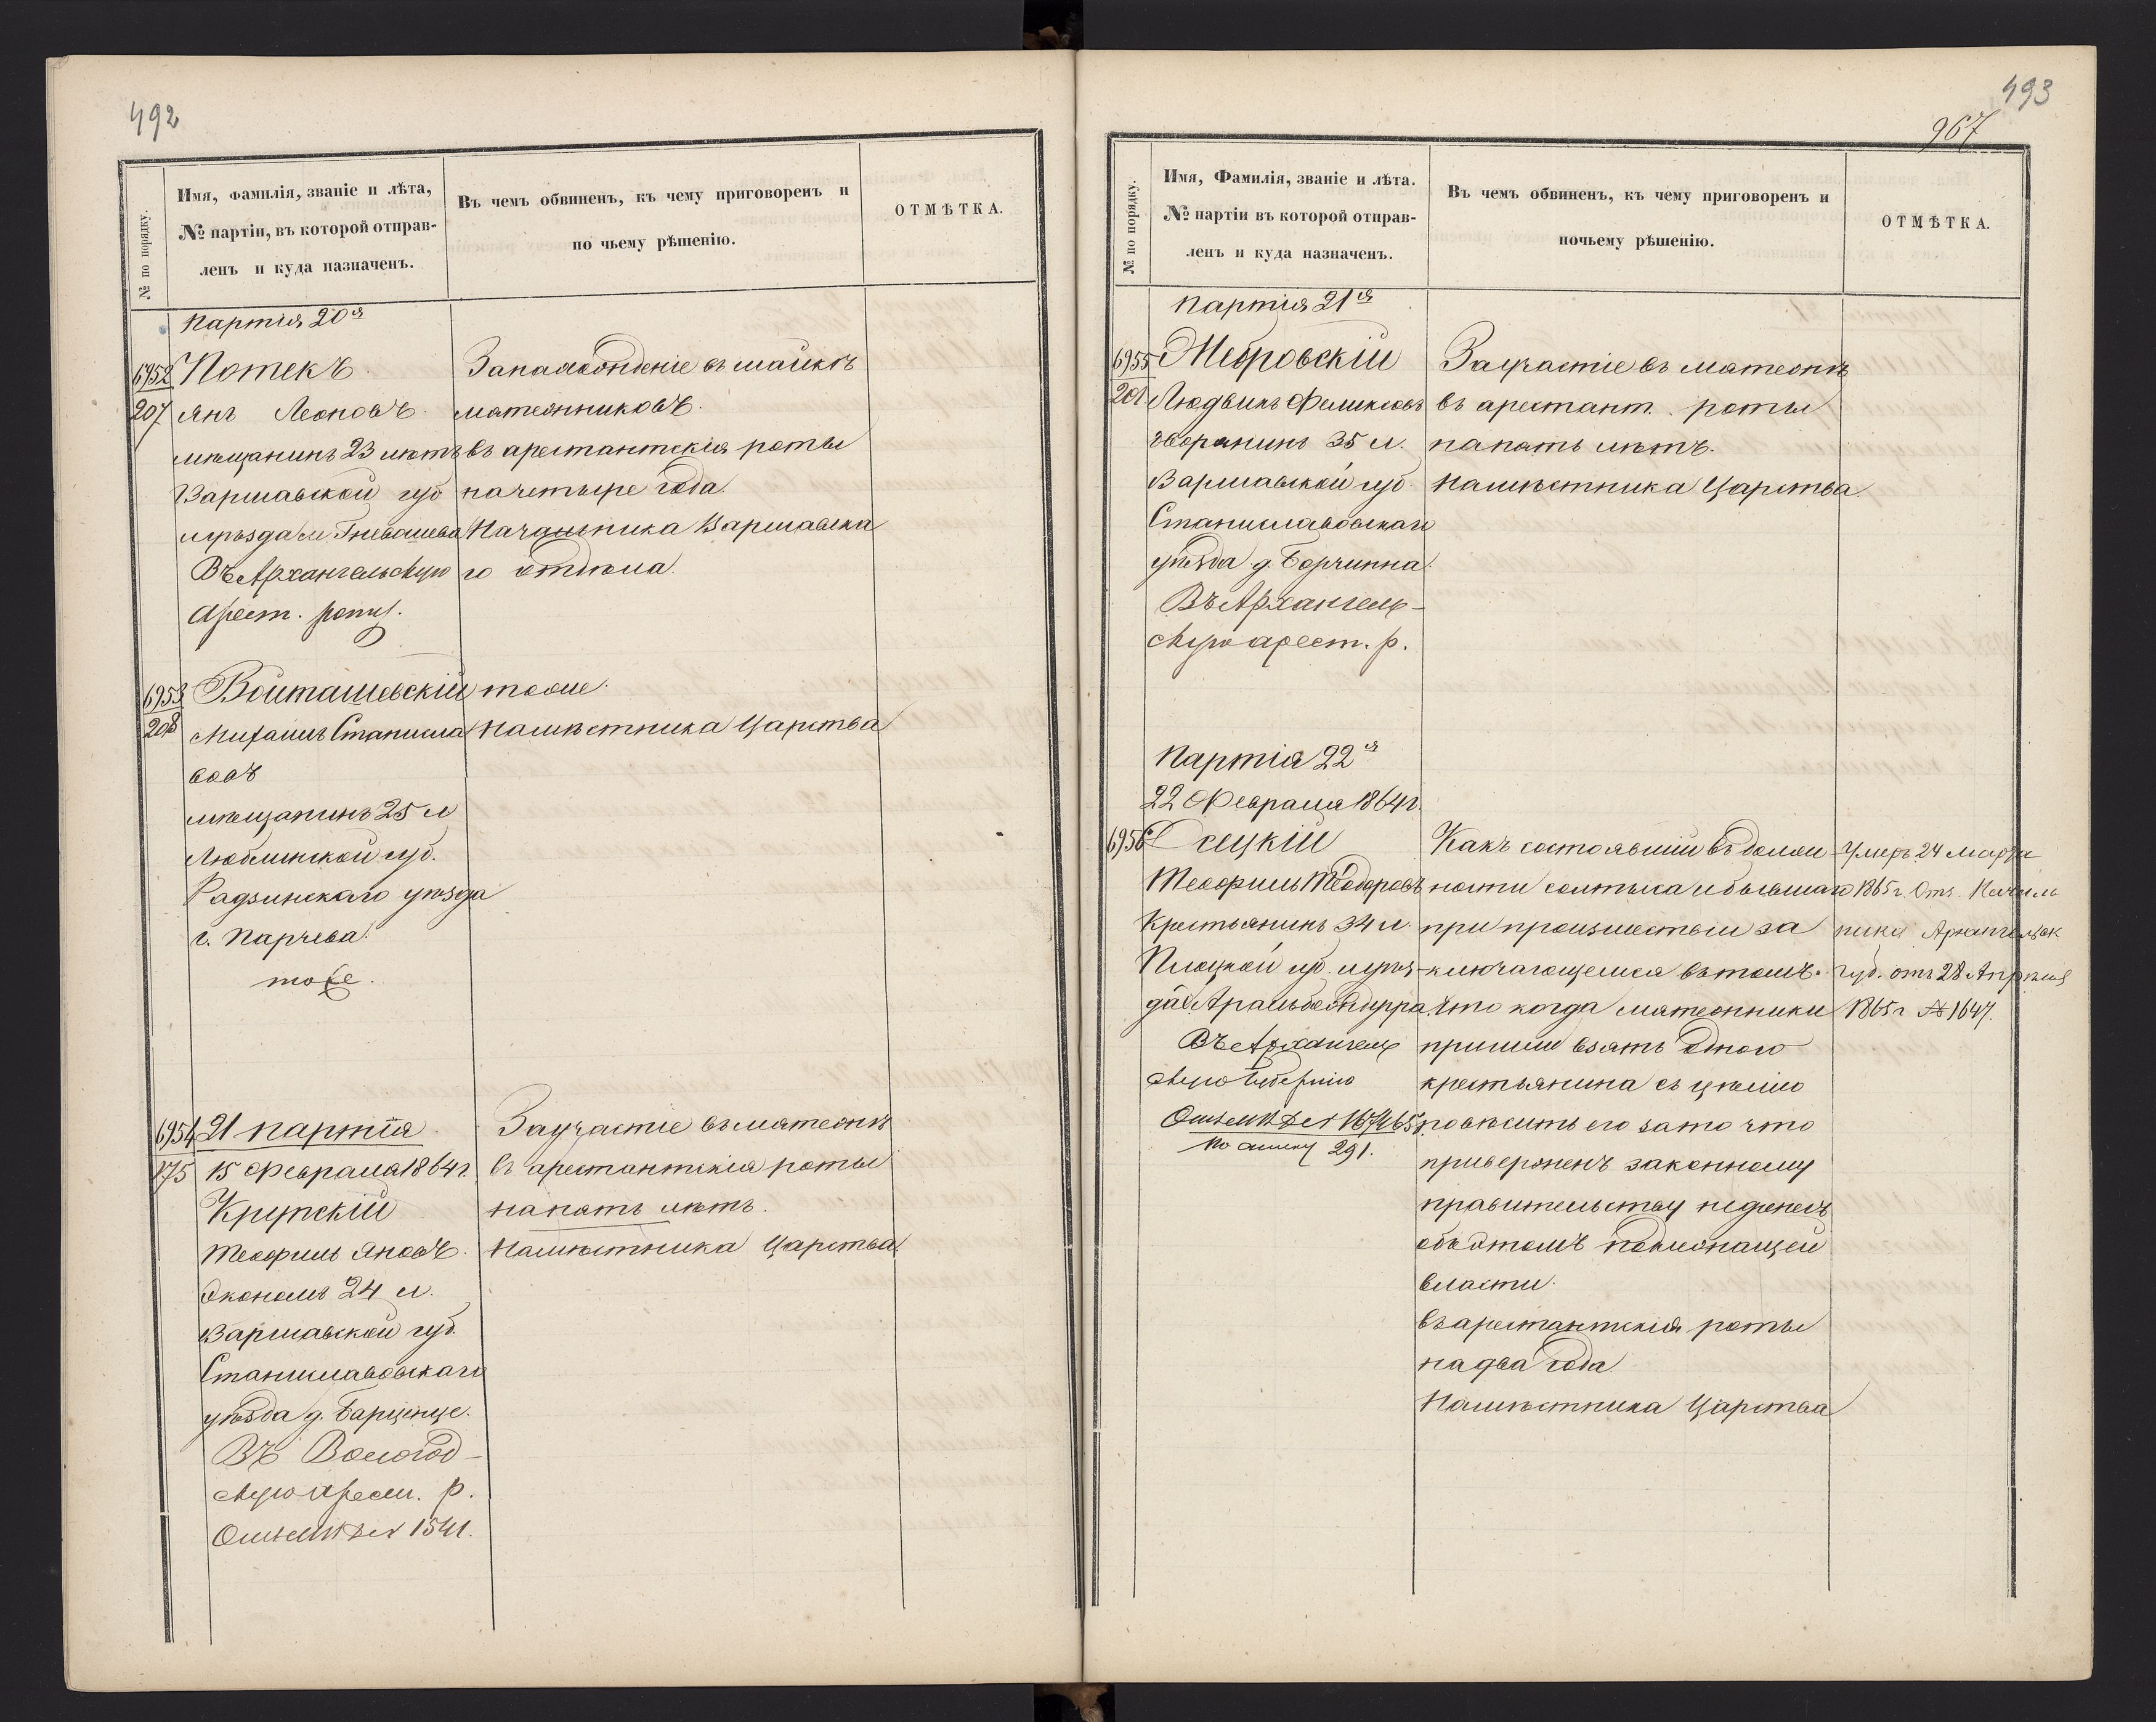 492
№ по порядку.
Имя, фамилія, званіе и лѣта,
№ партіи, въ которой отправ-
ленъ и куда назначенъ.
Въ чемъ обвиненъ, къ чему приговоренъ и
по чьему рѣшенію.
ОТМѢТКА.
Партія 20я
6952
207
Потекъ
Янъ Леоновъ
мѣщанинъ 23 лѣтъ
Варшавской губ
Въ Архангельскую
Арест. роту.
За нахожденіе въ шайкѣ
мятежниковъ.
въ арестантскія роты
на четыре года
Начальника Варшавска
го отдѣла.
6953
208
Войташевскій
Михаилъ Станисла
вовъ
мѣщанинъ 25 л
Люблинской губ.
Радзинскаго уѣзда
г. Парчева.
тоже.
тоже.
Намѣстника Царства
6954
175
21 партія
15 Февраля 1864 г.
Крупскій
Теофиль Яновъ
Экономъ 24 л.
Варшавской губ.
Станиславовскаго
уѣзда д.
Въ Вологод-
скую Арест. р.
1541.
За участіе въ мятежѣ
въ арестантскія роты
на пять лѣтъ.
Намѣстника Царства.
493
967
№ по порядку.
Имя, Фамилія, званіе и лѣта.
№ партіи въ которой отправ-
ленъ и куда назначенъ.
Въ чемъ обвиненъ, къ чему приговоренъ и
почьему рѣшенію.
ОТМѢТКА.
Партія 21я
6955
201
Жебровскій
Людвикъ Феликсовъ
дворянинъ 35 л.
Варшавской губ.
Станиславовскаго
уѣзда д.
Въ Архангель-
скую арест. р.
За участіе въ мятежѣ
въ арестант. роты
на пять лѣтъ.
Намѣстника Царства.
Партія 22я
22 Февраля 1864 г.
6956
Осецкій
Теофиль Теодоровъ
Крестьянинъ 34 л.
Плоцкой губ. и уѣз-
да
Въ Архангель
скую Губернію
По списку 291.
Какъ состоявшій въ долж-
ности солтыса и бывшаго
при происшествіи за
ключающемся въ томъ.
что когда мятежники
пришли взять одного
крестьянина съ цѣлію
повѣсить его за то что
приверженъ законному
правительству не донесъ
объ этомъ подлежащей
власти.
въ арестантскія роты
на два года.
Намѣстника Царства
Умеръ 24 Марта
1865 г. Отн. Началь
ника Архангельск
губ. отъ 28 Апрѣля
1865 г № 1647.